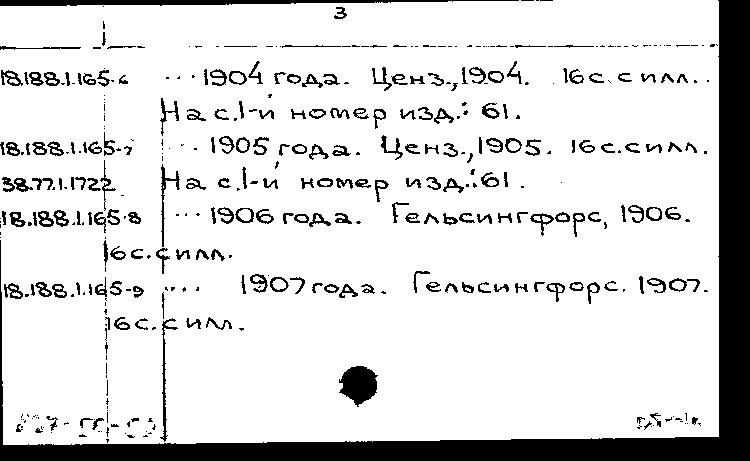 3
18.188.1.165-6 ... 1904 года. Ценз., 1904. 16 с. с илл.
На с. 1-й номер изд.: 61.
18.188.1.165-7 ... 1905 года. Ценз., 1905. 16 с. с илл.
38.77.1.1722 На с. 1-й номер изд.: 61.
18.188.1.165-8 ... 1906 года. Гельсингфорс, 1906.
16 с. с илл.
18.188.1.165-9 .... 1907 года. Гельсингфорс. 1907.
16 с. с илл.